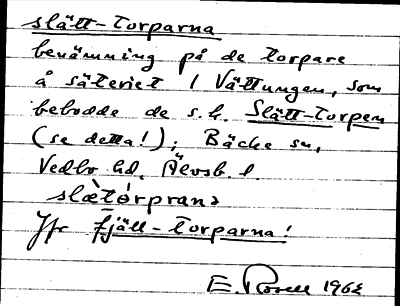 slätt-torparna
benämning på de torpare
å säteriet i Vättungen, som
bebodde de s.k. Slätt-torpen
(se detta!); Bäcke sn,
Vedbo hd. Älvsb. l.
slæ̀tórpranə
Jfr fjäll-torparna!
E. Rosell 1962